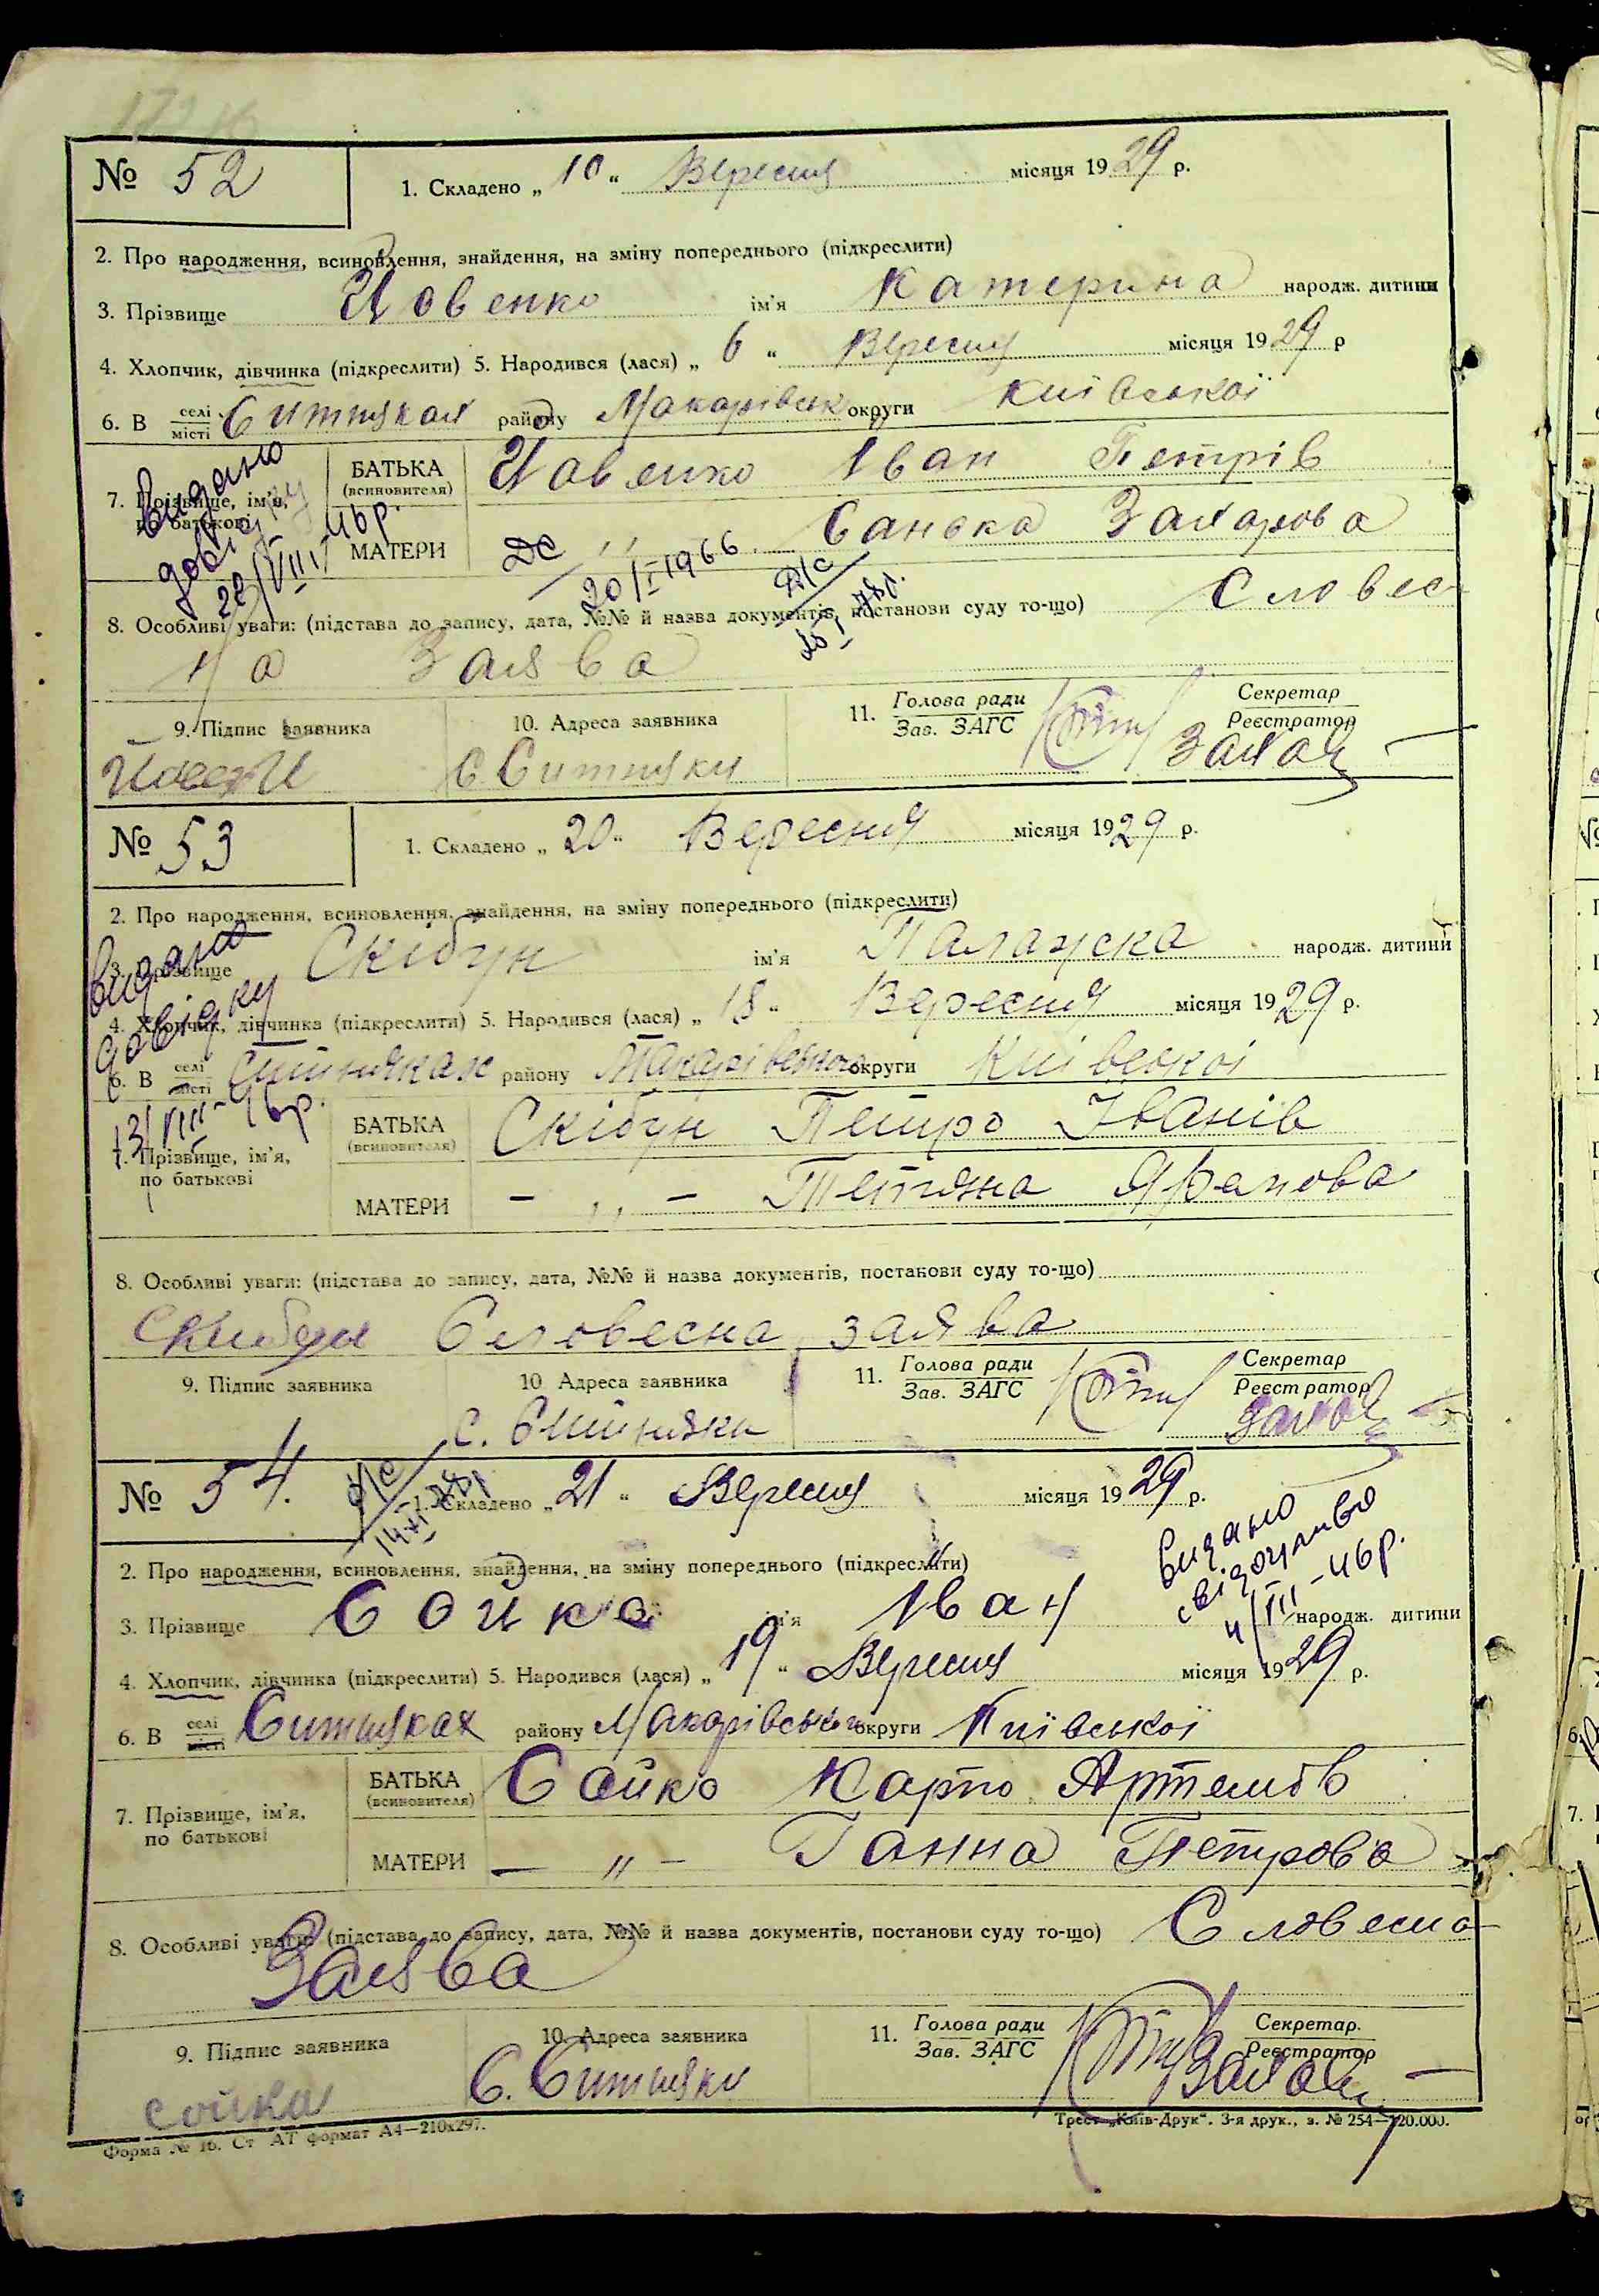 № 52
1. Складено „ 10 “ Вересня місяця 1929 р.
2. Про народження, всиновлення, знайдення, на зміну попереднього (підкреслити)
3. Прізвище Йовенко ім'я Катерина народж. дитини
4. Хлопчик, дівчинка (підкреслити) 5. Народився (лася) „ 6 “ Вересня місяця 1929 р
6. В селі/місті Ситняках району Макарівськ округи Київської
БАТЬКА (всиновителя) Йовенко Іван Петрів
7. Прізвище, ім'я, по батькові
МАТЕРИ „ Санька Захарова
видано довідку 22/VIII 46р.
ДС 20/I 1966
8. Особливі уваги: (підстава до запису, дата, №№ й назва документів, постанови суду то-що) Словес-
на Заява
9. Підпис заявника 10. Адреса заявника 11. Голова ради Зав. ЗАГС Секретар Реєстратор
с Ситняки
№ 53
1. Складено „ 20 “ Вересня місяця 1929 р.
2. Про народження, всиновлення, знайдення, на зміну попереднього (підкреслити)
3. Прізвище Скібун ім'я Палажска народж. дитини
видано довідку
4. Хлопчик, дівчинка (підкреслити) 5. Народився (лася) „ 18 “ Вересня місяця 1929 р.
6. В селі/місті Ситняках району Макарівського округи Київської
БАТЬКА (всиновителя) Скібун Петро Іванів
7. Прізвище, ім'я, по батькові
МАТЕРИ – „ – Тетяна
8. Особливі уваги: (підстава до запису, дата, №№ й назва документів, постанови суду то-що)
Словесна заява
9. Підпис заявника 10 Адреса заявника 11. Голова ради Зав. ЗАГС Секретар Реєстратор
с. Ситняки
№ 54.
1. Складено „ 21 “ Вересня місяця 1929 р.
2. Про народження, всиновлення, знайдення, на зміну попереднього (підкреслити)
видано свідоцтво 4/III-46р.
3. Прізвище Сойко ім'я Іван народж. дитини
4. Хлопчик, дівчинка (підкреслити) 5. Народився (лася) „ 19 “ Вересня місяця 1929 р.
6. В селі/місті Ситняках району Макарівського округи Київської
БАТЬКА (всиновителя) Сойко Карпо Артемів
7. Прізвище, ім'я, по батькові
МАТЕРИ — „ — Ганна Петрова
8. Особливі уваги: (підстава до запису, дата, №№ й назва документів, постанови суду то-що) Словесна
Заява
9. Підпис заявника 10. Адреса заявника 11. Голова ради Зав. ЗАГС Секретар. Реєстратор
сойка С. Ситняки
Форма № 16. Ст АТ формат А4—210х297.
Трест „Київ-Друк“. 3-я друк., з. № 254—120.000.